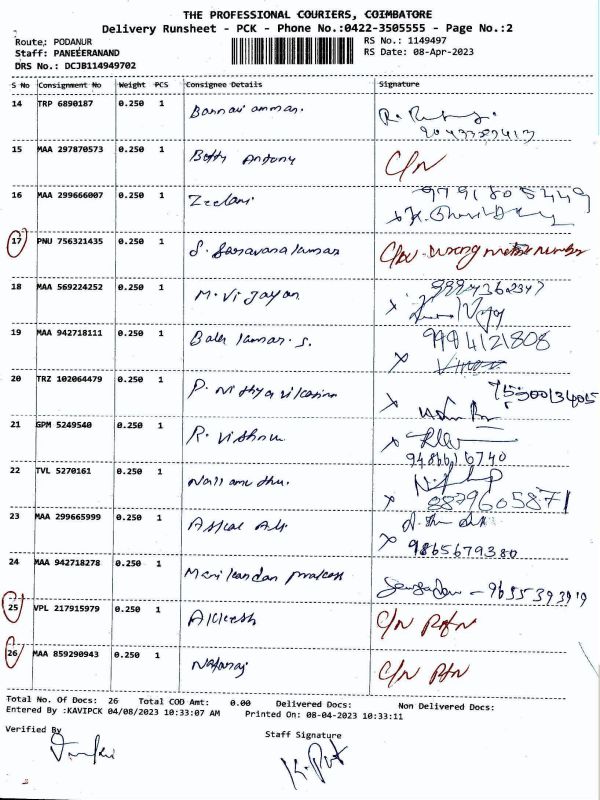 THE PROFESSIONAL COURIERS, COIMBATORE
Delivery Runsheet - PCK - Phone No.:0422-3505555 - Page No.:2
Route: PODANUR
RS No.: 1149497
Staff: PANEEERANAND
RS Date: 08-Apr-2023
DRS No.: DCJB114949702
S No Consignment No Weight PCS Consignee Details Signature
14 TRP 6890187 0.250 1 Bannari amman.
15 MAA 297870573 0.250 1 Betty Antony C/N
16 MAA 299666007 0.250 1 Zeelani 9791805449
17 PNU 756321435 0.250 1 S. Saravana kumar wrong number
18 MAA 569224252 0.250 1 M. Vijayan
19 MAA 942718111 0.250 1 Bala kumar. S. 9994121808
20 TRZ 102064479 0.250 1 P. Nithya
21 GPM 5249540 0.250 1 R. Vishnu
9486616740
22 TVL 5270161 0.250 1 Nallamuthu.
8829605871
23 MAA 299665999 0.250 1
9865679380
24 MAA 942718278 0.250 1 Manikandan prakash
25 VPL 217915979 0.250 1 Akilesh C/N
26 MAA 859290943 0.250 1 Nataraj C/N
Total No. Of Docs: 26 Total COD Amt: 0.00 Delivered Docs: Non Delivered Docs:
Entered By :KAVIPCK 04/08/2023 10:33:07 AM Printed On: 08-04-2023 10:33:11
Verified By Staff Signature